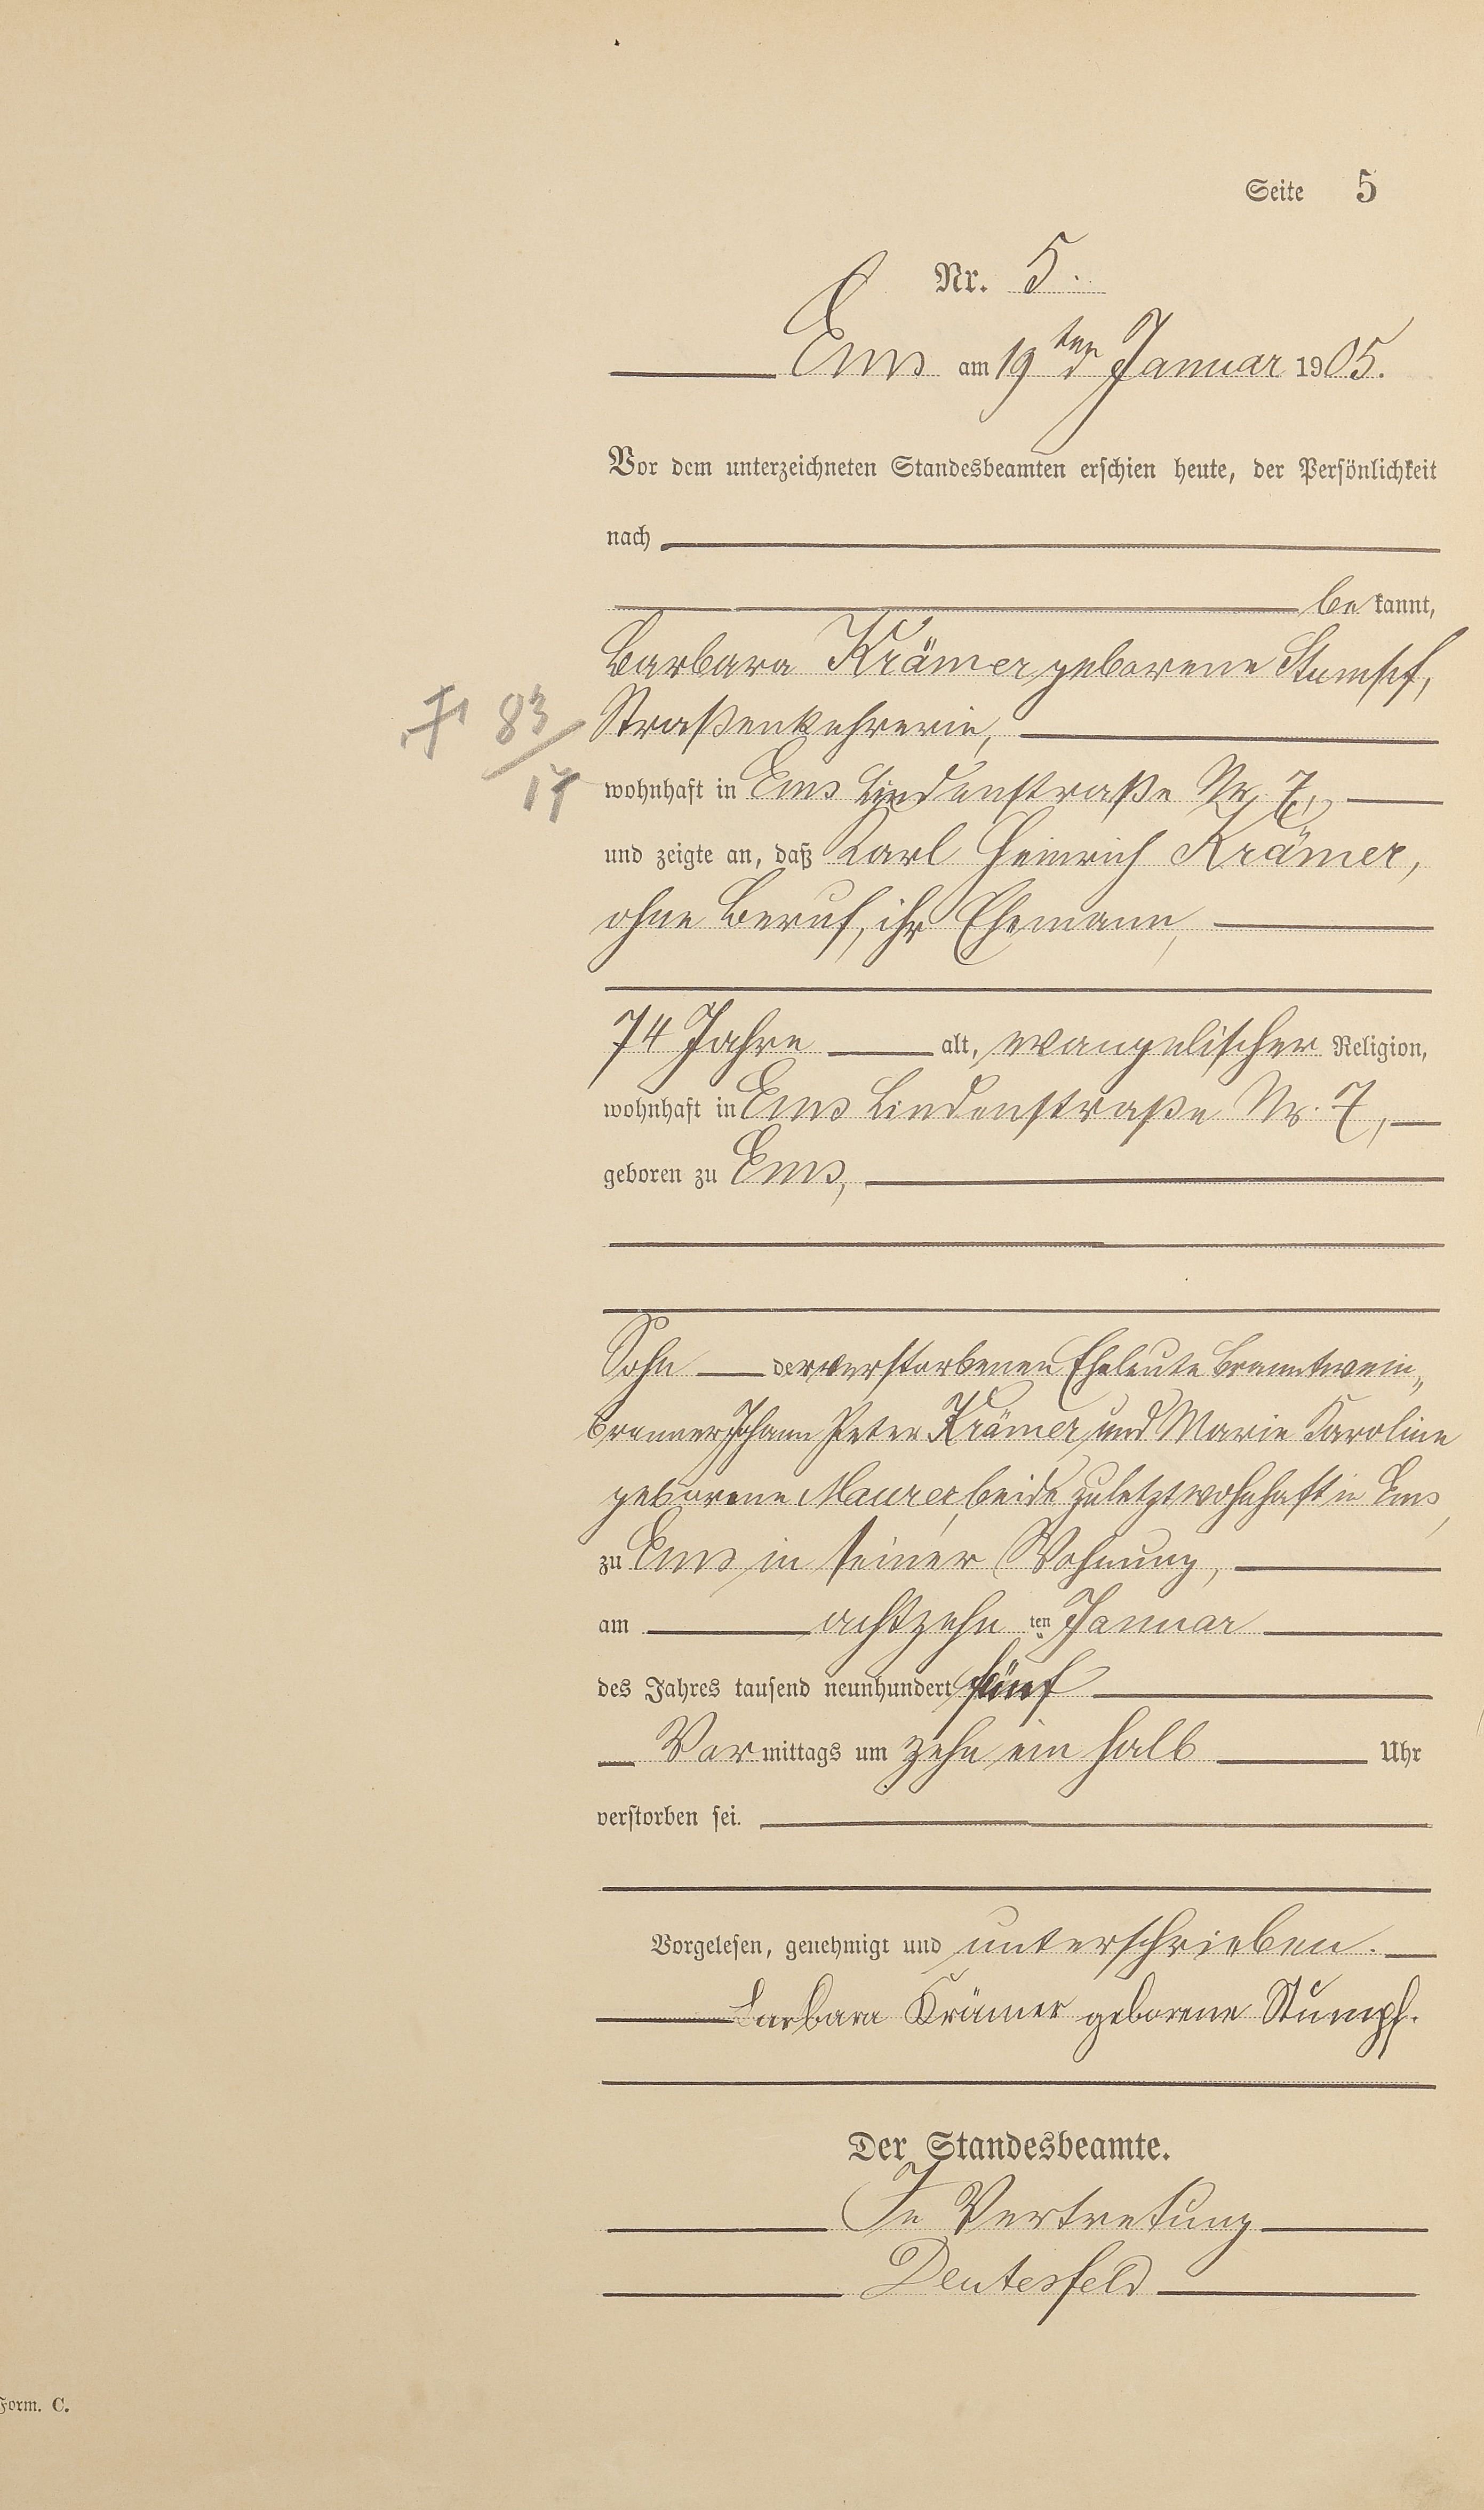 Seite 5
Nr. 5.
Ems am 19ten Januar 1905.
Vor dem unterzeichneten Standesbeamten erschien heute, der Persönlichkeit
nach
be kannt,
Barbara Krämer geborene Stumpf,
Straßenkehrerin,
83
17
wohnhaft in Ems Lindenstraße Nr. 7,
und zeigte an, daß Karl Heinrich Krämer,
ohne Beruf, ihr Ehemann,
74 Jahre alt, evangelischer Religion,
wohnhaft in Ems Lindenstraße Nr. 7,
geboren zu Ems,
Sohn der verstorbenen Eheleute Branntwein„
brenner Johann Peter Krämer und Marie Karoline
geborene Maurer, beide zuletzt wohnhaft in Ems,
zu Ems in seiner Wohnung,
am achtzehn ten Januar
des Jahres tausend neunhundert fünf
Vor mittags um zehn ein halb Uhr
verstorben sei.
Vorgelesen, genehmigt und unterschrieben.
Barbara Krämer geborene Stumpf.
Der Standesbeamte.
In Vertretung
Deutesfeld
Form. C.